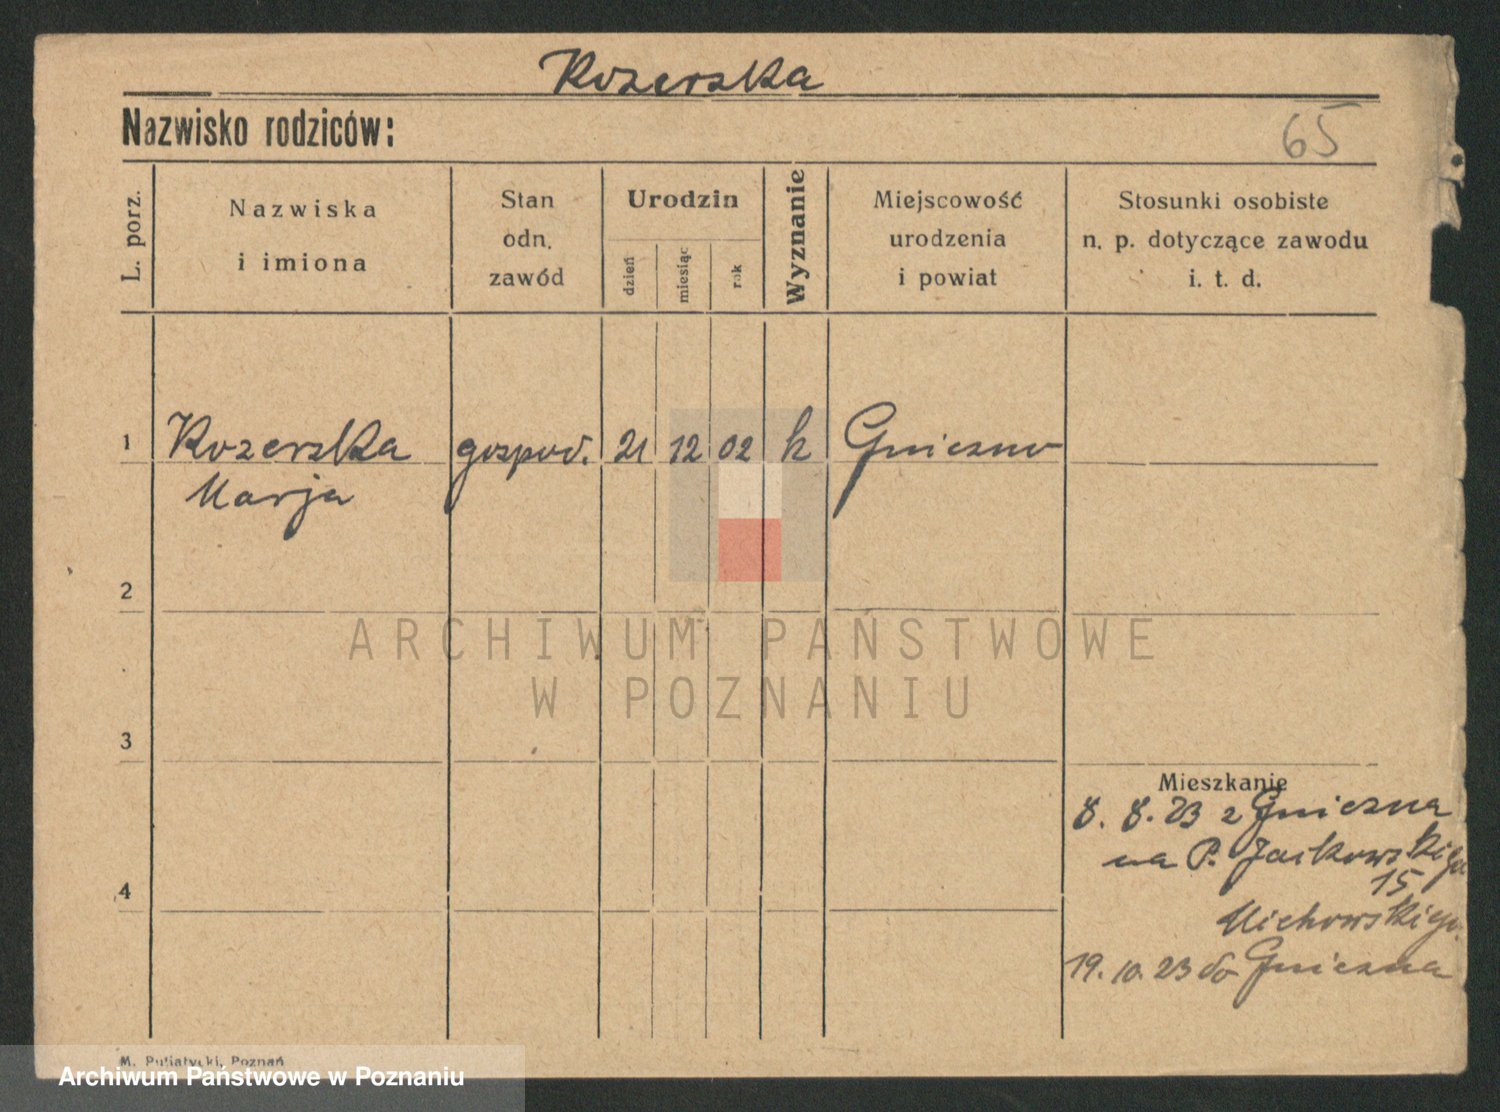 Kozerska
Nazwisko rodziców:
65
L. porz.
Nazwiska
i imiona
Stan
odn.
zawód
Urodzin
dzień
miesiąc
rok
Wyznanie
Miejscowość
urodzenia
i powiat
Stosunki osobiste
n. p. dotyczące zawodu
i. t. d.
1 Kozerska gospod. 21 12 02 k Gniezno
Marja
2
ARCHIWUM PAŃSTWOWE
W POZNANIU
3
Mieszkanie
8. 8. 23 z Gniezna
na P. Jackowskiego
15
4
Michowskiego.
19. 10. 23 do Gniezna
M. Putiatycki, Poznań
Archiwum Państwowe w Poznaniu